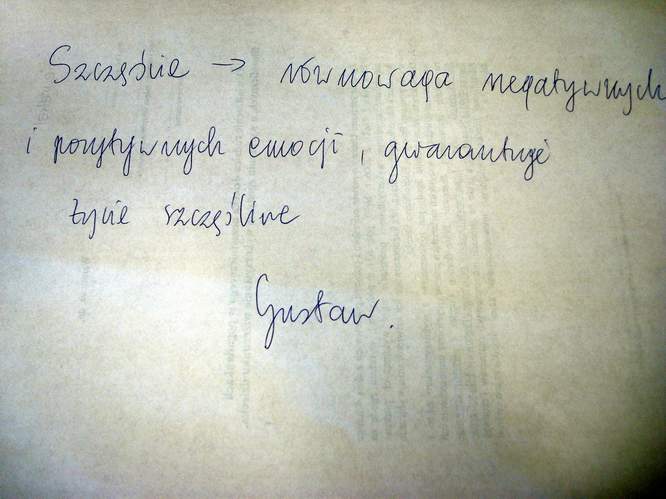 Szczęście → równowaga negatywnych
i pozytywnych emocji, gwarantuje
życie szczęśliwe
Gustaw.